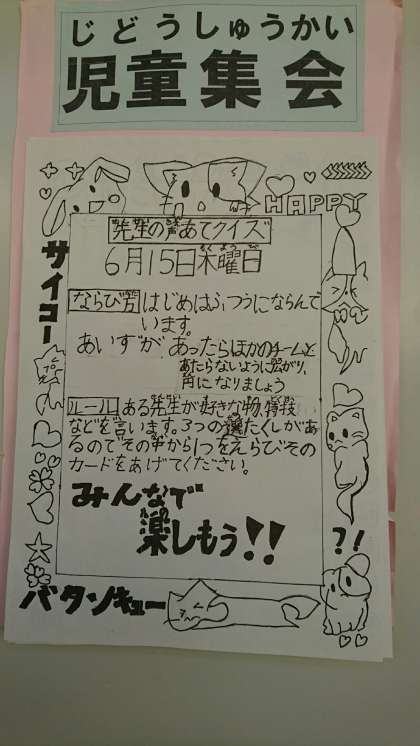 じどうしゅうかい
児童集会
HAPPY
先生の声あてクイズ
6月15日木曜日
もくようび
サイコー
ならび方 はじめはふつうにならんで
います。
あいずがあったらほかのチームと
あたらないように広がり、
円になりましょう
ルール ある先生が好きな物、特技
などを言います。3つの選たくしがあ
るのでその中から1つをえらびその
カードをあげてください。
みんなで
楽しもう!!
?!
バタンキュー